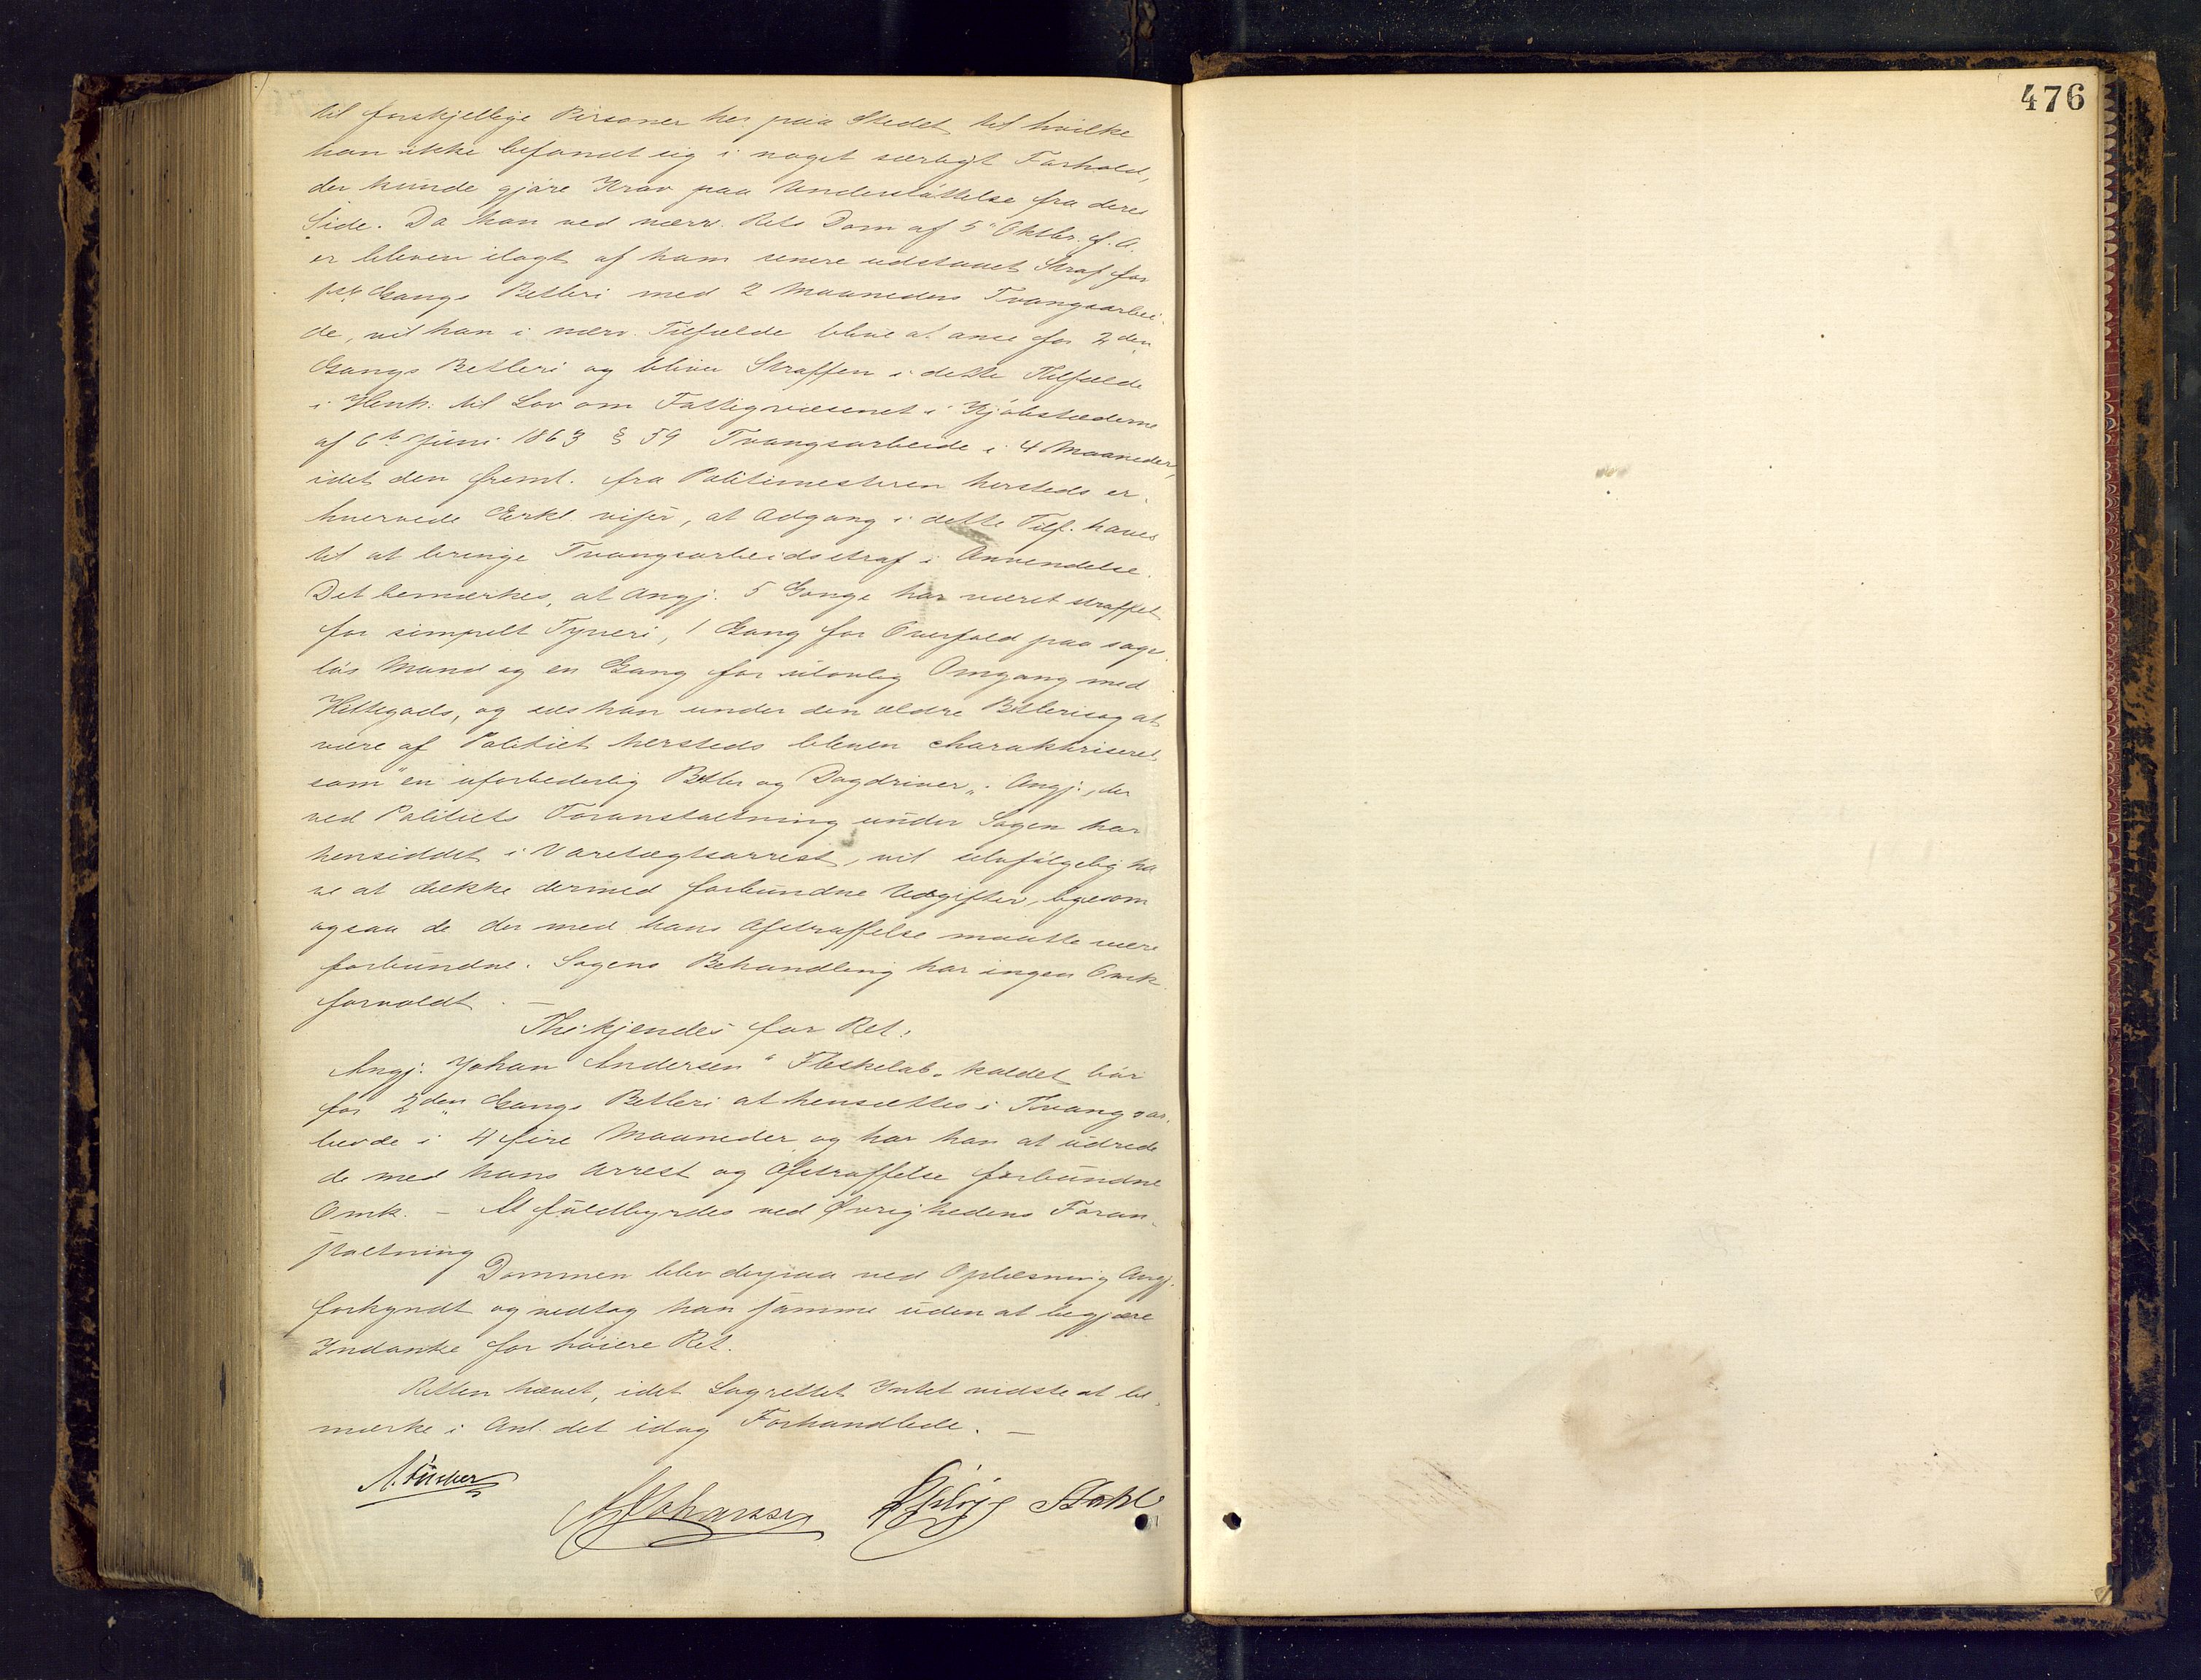 til forskjellige Personer her paa Stedet til hvilke
han ikke befandt sig i noget særligt Forhold,
der kunde gjøre Krav paa Understøttelse fra deres
Side. Da han ved nærv. Rets Dom af 5" Oktbr. f. A.
er bleven ilagt af ham senere udstaaet Straf for
1ste Gangs Betleri med 2 Maaneders Tvangsarbei-
de, vil han i nærv. Tilfælde blive at anse for 2den
Gangs Betleri og bliver Straffen i dette Tilfælde
i Henh. til Lov om Fattigvæsenet i Kjøbstæderne
af 6te Juni 1863 § 59 Tvangsarbeide i 4 Maaneder,
idet den freml. fra Politimesteren hersteds er-
hvervede Erkl. viser, at Adgang i dette Tilf. haves
til at bringe Tvangsarbeidsstraf i Anvendelse.
Det bemærkes, at Angj. 5 Gange har været straffet
for simpelt Tyveri, 1 Gang for Overfald paa sages-
løs Mand og en Gang for ulovlig Omgang med
Hittegods, og sees han under den ældre Betlerisag at
være af Politiet hersteds bleven charakteriseret
som "en uforbederlig Betler og Dagdriver„. Angj., der
ved Politiets Foranstaltning under Sagen har
hensiddet i Varetægtsarrest, vil selvfølgelig ha
ve at dække dermed forbundne Udgifter, ligesom
ogsaa de der med hans Afstraffelse maatte være
forbundne. Sagens Behandling har ingen Omk.
forvoldt. —
Thi kjendes for Ret:
Angj. Johan Andersen "Fleskelab„ kaldet bør
for 2den Gangs Betleri at hensættes i Tvangsar-
beide i 4 fire Maaneder og har han at udrede
de med hans Arrest og Afstraffelse forbundne
Omk. – At fuldbyrdes ved Øvrighedens Foran-
staltning
Dommen blev derpaa ved Oplæsning Angj.
forkyndt og vedtog han samme uden at begjære
Indanke for høiere Ret.
Retten hævet, idet Lagrettet Intet vidste at be-
mærke i Anl. det idag Forhandlede. —
A Johanssen Dahl
476